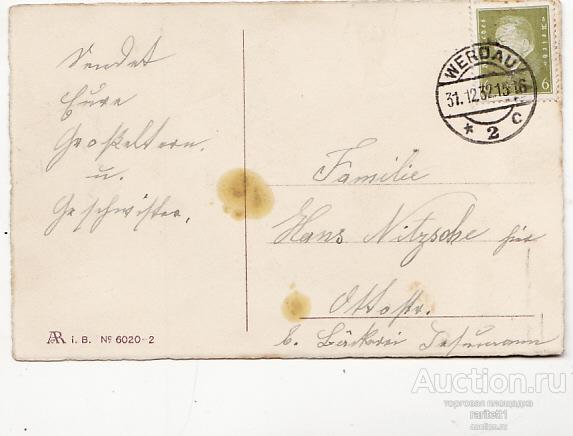 Sendet
Eure
Großeltern.
u.
Geschwister.
WERDAU
31.12.32.15-16
* 2 c
6
Familie
Hans Nitzsche hier
Ottostr.
b. Bäckerei
AR i. B. Nº 6020-2
Auction.ru
торговая площадка
raritet1
auction.ru